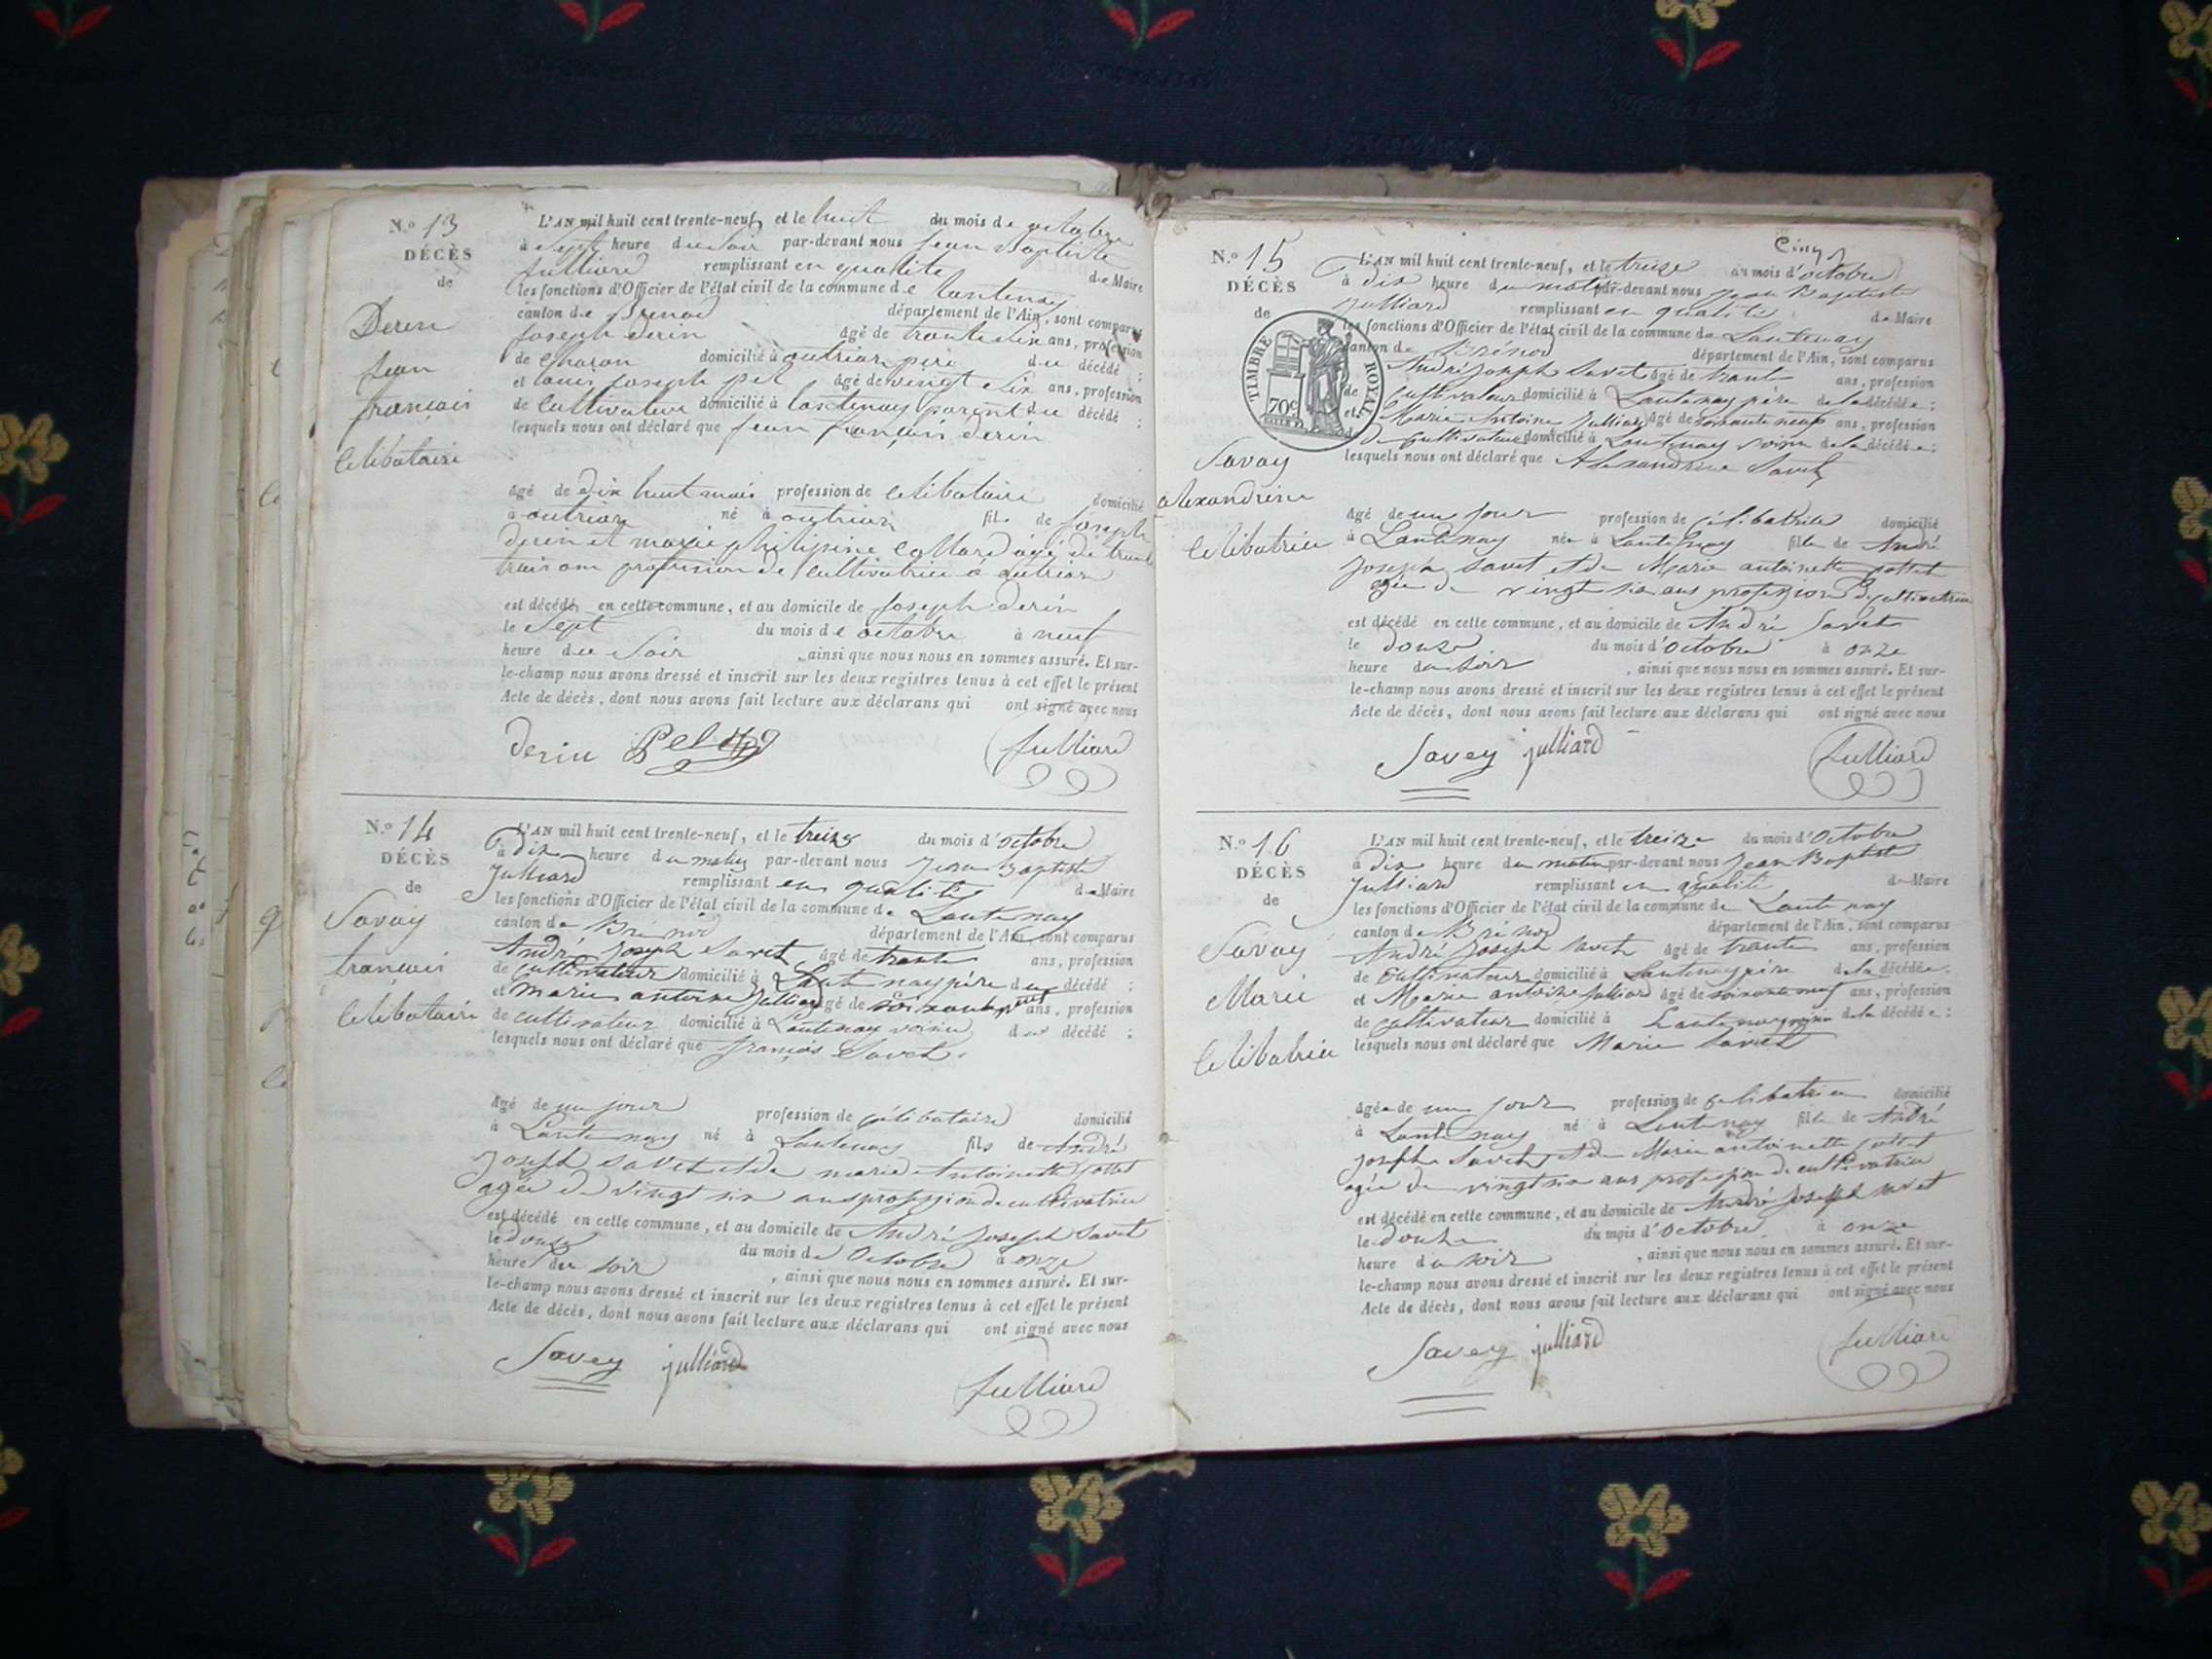 N.º 13
DÉCÈS
de
Derin
Jean
françois
Celibataire
L'AN mil huit cent trente-neuf, et le huit du mois de octobre
à Sept heure du Soir par-devant nous Jean Baptiste
Julliard remplissant en qualité de Maire
les fonctions d'Officier de l'état civil de la commune de Lantenay
canton de Brenod département de l'Ain, sont comparus
Joseph derin âgé de trante six ans, profession
de Charon domicilié à outriaz père du décédé ;
et louis Joseph pel âgé de vingt six ans, profession
de Cultivateur domicilié à lantenay parent du décédé ;
lesquels nous ont déclaré que Jean françois derin
âgé de dix huit mois profession de Celibataire domicilié
à outriaz né à outriaz fils de Joseph
derin et marie philipine Collard âgé de trante
trois ans profession de Cultivatrice à outriaz
est décédé en cette commune, et au domicile de Joseph derin
le Sept du mois de octobre à neuf
heure du Soir, ainsi que nous nous en sommes assuré. Et sur-
le-champ nous avons dressé et inscrit sur les deux registres tenus à cet effet le présent
Acte de décès, dont nous avons fait lecture aux déclarans qui ont signé avec nous
derin Pel Julliard
N.º 14
DÉCÈS
de
Savay
françois
Celibataire
L'AN mil huit cent trente-neuf, et le treize du mois d'octobre
à dix heure du matin par-devant nous Jean Baptiste
Julliard remplissant en qualité de Maire
les fonctions d'Officier de l'état civil de la commune de Lantenay
canton de Brénod département de l'Ain, sont comparus
André Joseph Savet âgé de trante ans, profession
de cultivateur domicilié à Lantenay père du décédé ;
et marie antoine Julliard âgé de soixante neuf ans, profession
de cultivateur domicilié à Lantenay voisin du décédé ;
lesquels nous ont déclaré que françois Savet.
âgé de un jour profession de célibataire domicilié
à Lantenay né à Lantenay fils de André
Joseph Savet et de marie Antoinette
agée de vingt six ans profession de cultivatrice
est décédé en cette commune, et au domicile de André Joseph Savet
le douze du mois de Octobre à onze
heure du soir, ainsi que nous nous en sommes assuré. Et sur-
le-champ nous avons dressé et inscrit sur les deux registres tenus à cet effet le présent
Acte de décès, dont nous avons fait lecture aux déclarans qui ont signé avec nous
Savey julliard Julliard
Cinq
N.º 15
DÉCÈS
de
TIMBRE ROYAL
70c
Savay
alexandrine
Celibatrice
L'AN mil huit cent trente-neuf, et le treize du mois d'octobre
à dix heure du matin par-devant nous Jean Baptiste
Julliard remplissant en qualité de Maire
les fonctions d'Officier de l'état civil de la commune de Lantenay
canton de Brénod département de l'Ain, sont comparus
André Joseph Savet âgé de trante ans, profession
de Cultivateur domicilié à Lantenay père de la décédée ;
et Marie Antoine Julliard âgé de soixante neuf ans, profession
de Cultivateur domicilié à Lantenay voisin de la décédée ;
lesquels nous ont déclaré que Alexandrine Savet
âgé de un jour profession de célibatrice domicilié
à Lantenay née à Lantenay fille de André
Joseph Savet et de Marie antoinette
agée de vingt six ans profession de cultivatrice
est décédé en cette commune, et au domicile de André Savet
le douze du mois d'octobre à onze
heure du soir, ainsi que nous nous en sommes assuré. Et sur-
le-champ nous avons dressé et inscrit sur les deux registres tenus à cet effet le présent
Acte de décès, dont nous avons fait lecture aux déclarans qui ont signé avec nous
Savey julliard Julliard
N.º 16
DÉCÈS
de
Savay
Marie
Celibatrice
L'AN mil huit cent trente-neuf, et le treize du mois d'Octobre
à dix heure du matin par-devant nous Jean Baptiste
Julliard remplissant en qualité de Maire
les fonctions d'Officier de l'état civil de la commune de Lantenay
canton de Brénod département de l'Ain, sont comparus
André Joseph Savet âgé de trante ans, profession
de Cultivateur domicilié à Lantenay père de la décédée.
et Marie antoine Julliard âgé de soixante neuf ans, profession
de cultivateur domicilié à Lantenay voisin de la décédée ;
lesquels nous ont déclaré que Marie Savet
âgée de un jour profession de Celibatrice domicilié
à Lantenay né à Lantenay fille de André
Joseph Savet et de Marie antoinette
agée de vingt six ans profession de cultivatrice
est décédé en cette commune, et au domicile de André Joseph Savet
le douze du mois d'octobre. à onze
heure du soir, ainsi que nous nous en sommes assuré. Et sur-
le-champ nous avons dressé et inscrit sur les deux registres tenus à cet effet le présent
Acte de décès, dont nous avons fait lecture aux déclarans qui ont signé avec nous
Savey julliard Julliard